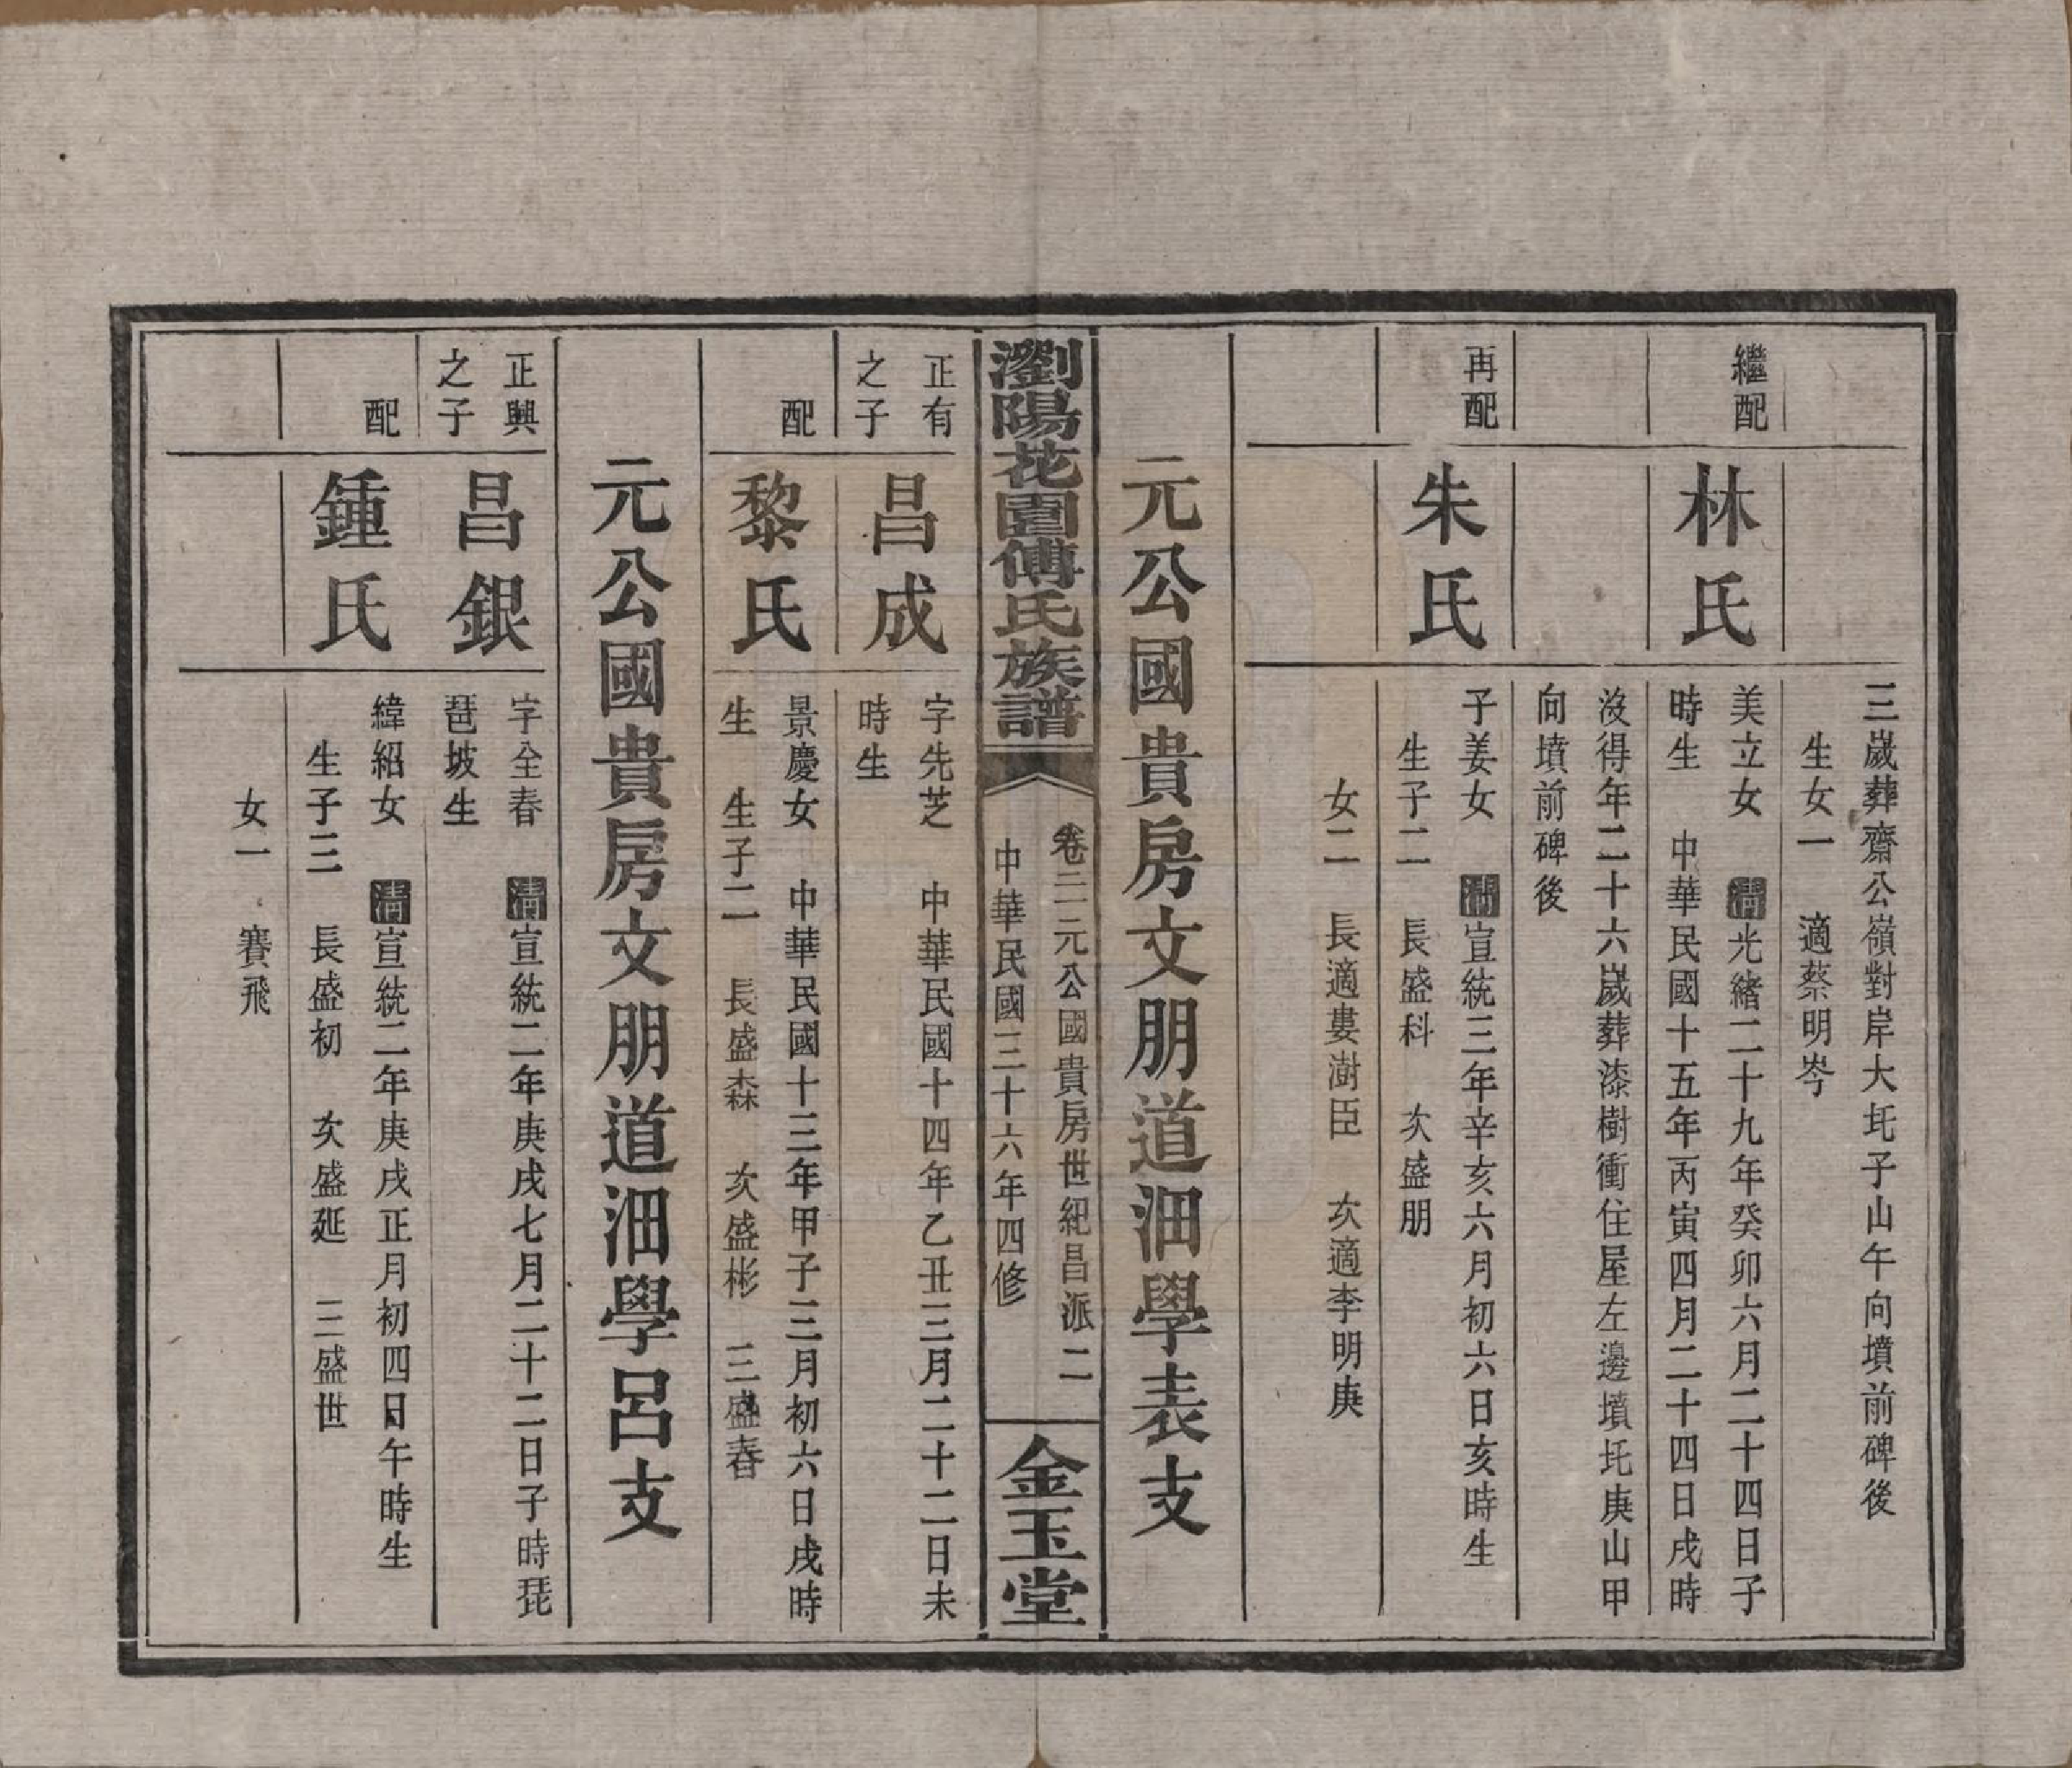 三嵗葬齋公嶺對岸大圫子山午向墳前碑後
生女一　適蔡明岑
繼配
林氏
美立女　清光緒二十九年癸卯六月二十四日子
時生　中華民國十五年丙寅四月二十四日戌時
沒得年二十六嵗葬漆樹衝住屋左邊墳圫庚山甲
向墳前碑後
再配
朱氏
子姜女　清宣統三年辛亥六月初六日亥時生
生子二　長盛科　次盛朋
女二　長適婁澍臣　次適李明庚
元公國貴房文朋道沺學表支
瀏陽花園傅氏族譜
卷三元公國貴房世紀昌派　二
中華民國三十六年四修
金玉堂
正有
之子
昌成
字先芝　中華民國十四年乙丑三月二十二日未
時生
配
黎氏
景慶女　中華民國十三年甲子三月初六日戌時
生　生子二　長盛森　次盛彬　三盛春
元公國貴房文朋道沺學呂支
正興
之子
昌銀
字全春　清宣統二年庚戌七月二十二日子時琵
琶坡生
配
鍾氏
緯紹女　清宣統二年庚戌正月初四日午時生
生子三　長盛初　次盛延　三盛世
女一　賽飛